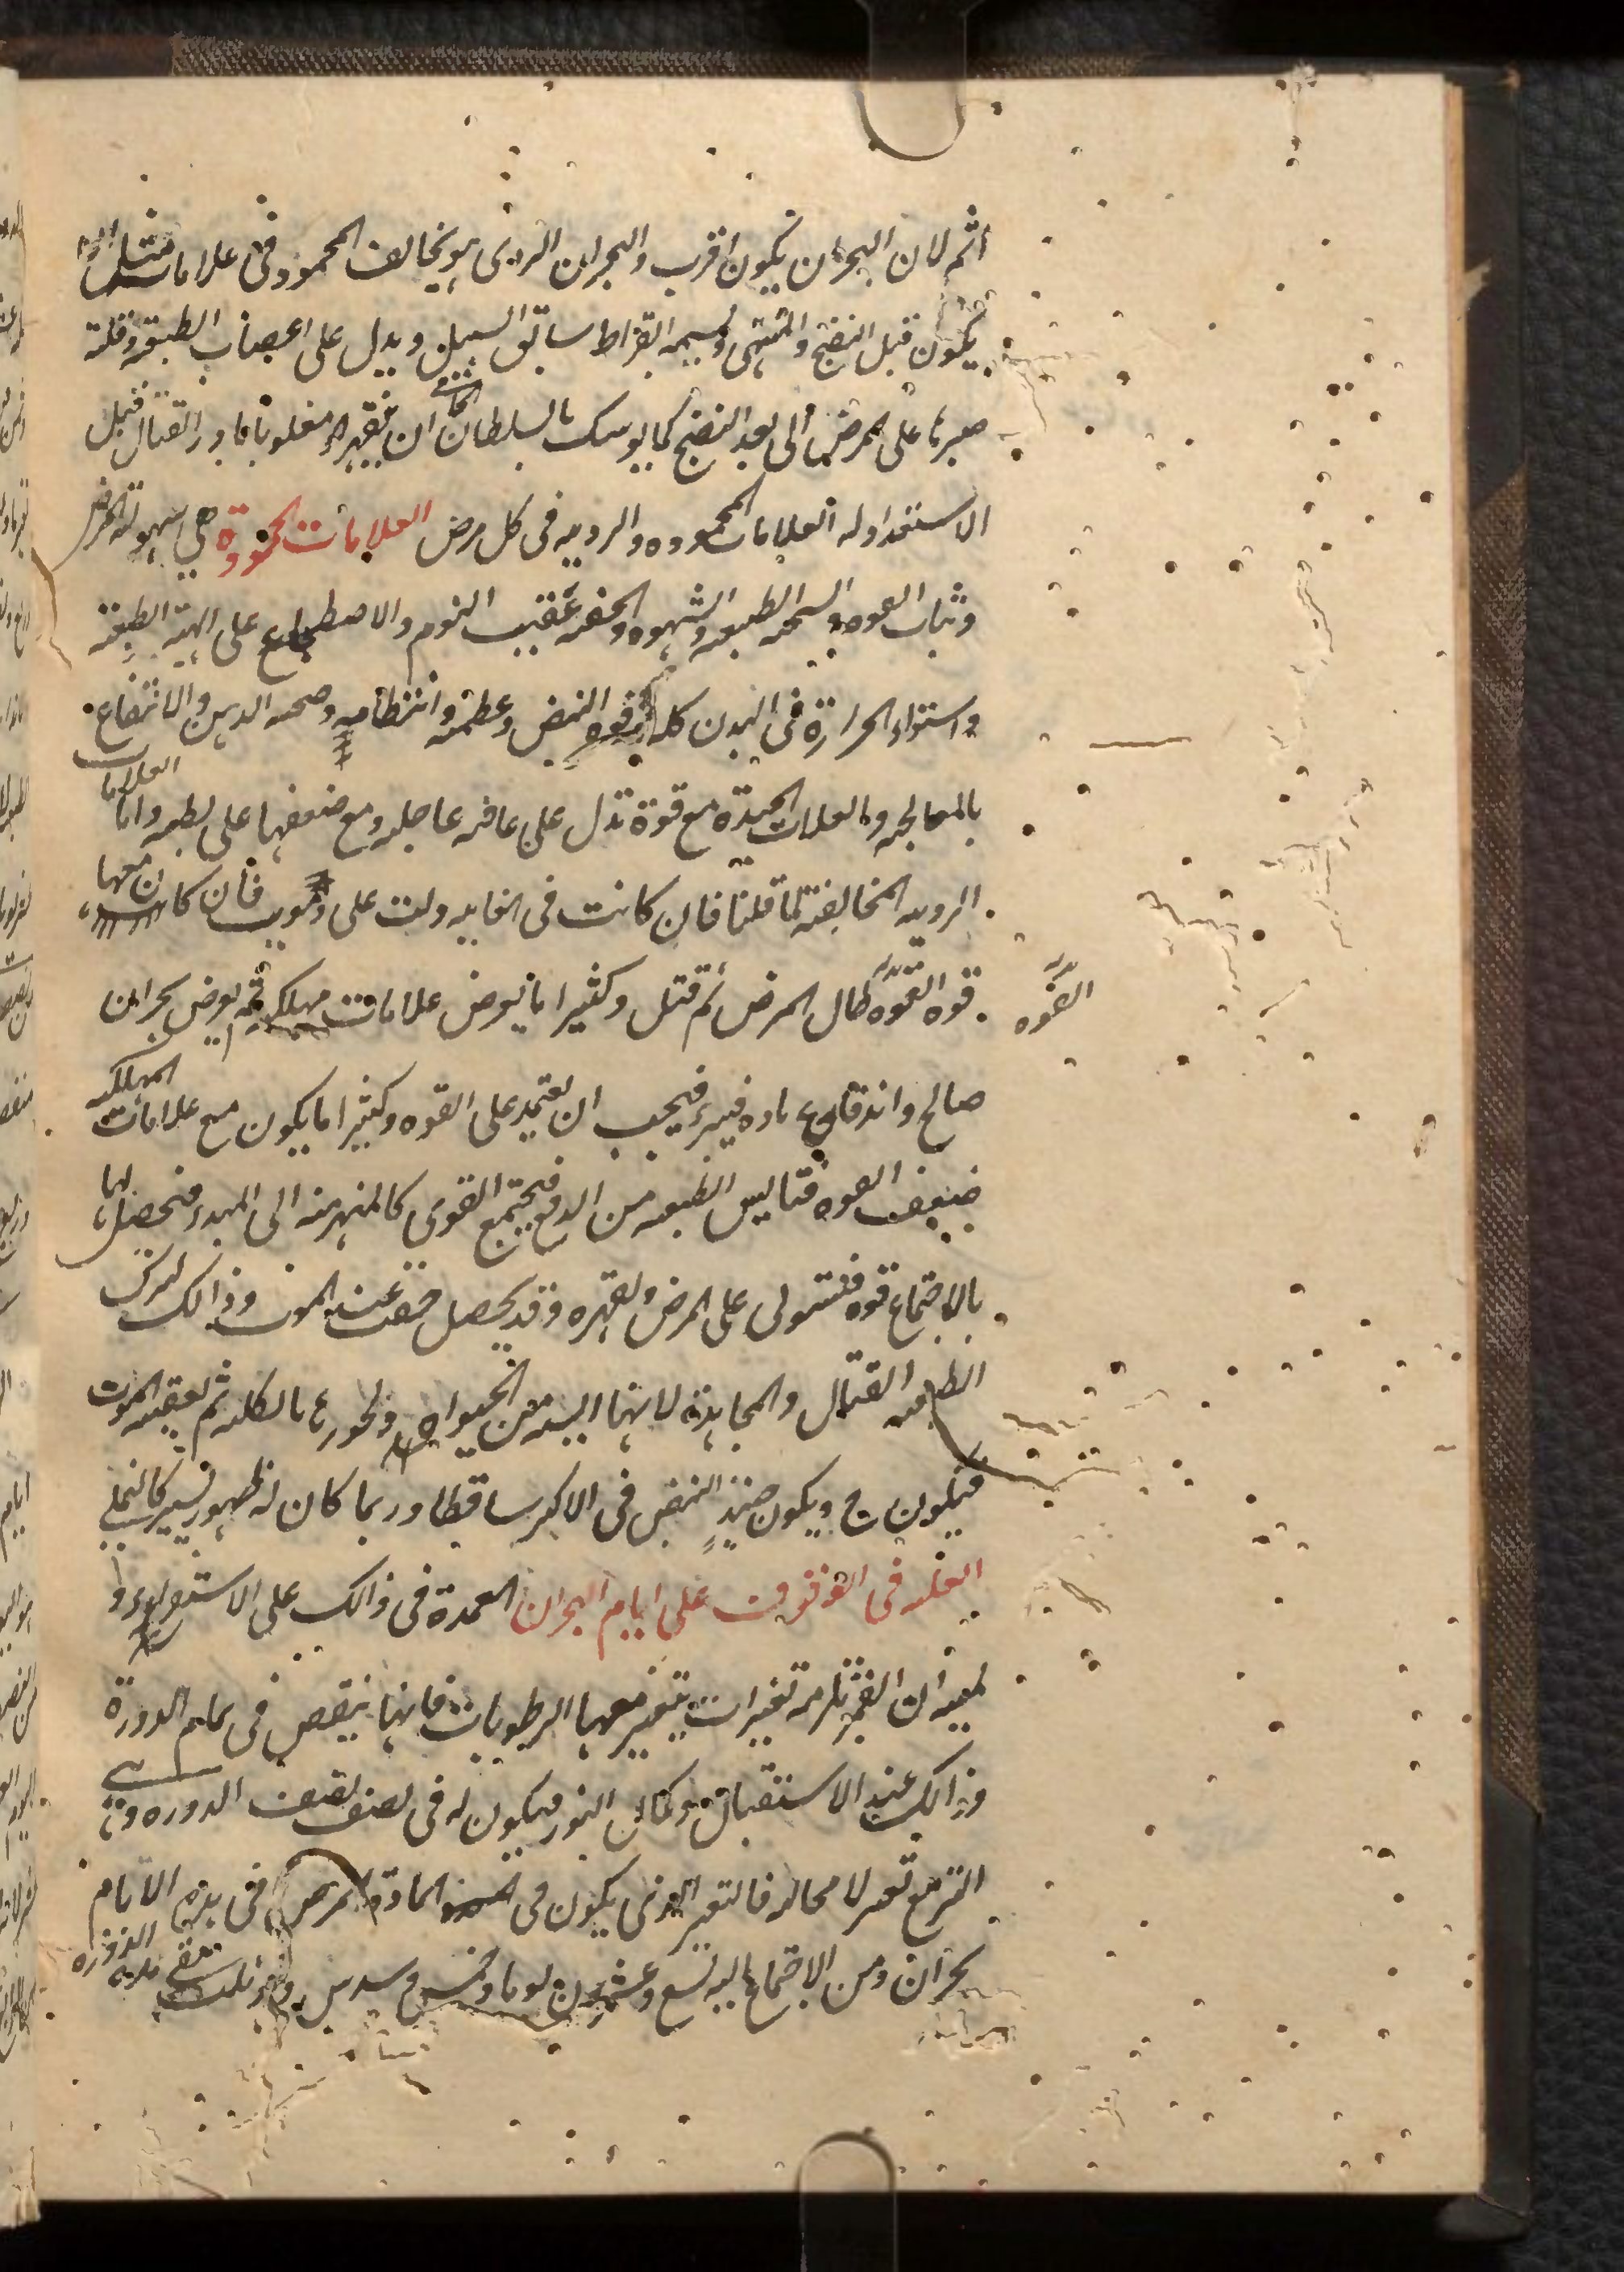 اثم لان البحران يكون اقرب والبحران الردى هو يخالف المحمود فى علامات مثل ان
يكون قبل النضج والمنتهى ويسميه ابقراط سابق السبيل ويدل على اعصاب الطبيعة وقلة
صبرها على المرض الى بعد النضج كما يوسك بالسلطان ان يقهره مغلوبا يبادر القتال قبل
الاستعداد له العلامات المحموده والرديه فى كل مرض العلامات المحمودة هى سهولة المرض
وثبات القوه والسحنه الطبيعيه والشهوه والخفه عقيب النوم والاضطجاع على الهيئة الطبيعية
واستواء الحرارة فى البدن كله وقوه النبض وعظمه وانتظامه وصحه الذهن والانتفاع
بالمعالجه والعلامات الجيدة مع قوة تدل على عافيه عاجله ومع ضعفها على بطيه واما العلامات
الرديه المخالفة لما قلنا فان كانت فى الغايه دلت على موت فان كان معها
قوه القوه طال المرض ثم قتل وكثيرا ما يعرض علامات مهلكه ثم يعرض بحران
القوه
صالح واندفاع ماده فيبرء فيجب ان يعتمد على القوه وكثيرا ما يكون مع علامات المهلكه
ضعيف القوه فتاليس الطبيعه من الدفع فيجتمع القوى كالمنهزمه الى المبدء فتحصل لها
بالاجتماع قوه فتستولى على المرض وتقهره وقد يحصل خفة عند الموت وذالك لترك
الطبيعه القتال والمجاهدة لانها ايسه من الحيواة وتخور بالكليه ثم يعقبه الموت
فيكون ح ويكون حينئذ النبض فى الاكثر ساقطا وربما كان له ظهور يسير كالنملى
العله فى الوقوف على ايام البحران العمدة فى ذالك على الاستقراء و
لميه ان القمر يلزمه تغيرات يتغير معها الرطوبات فانها ينقص فى تمام الدورة
وذالك عند الاستقبال وكمال النور فيكون له فى نصف نصف الدوره و هى
التربيع تغير لا محاله فالتغير الذى يكون فى المادة المرض فى هذه الايام
بحران ومن الاجتماع اليه تسع وعشرون يوما وخمس وسدس يوم